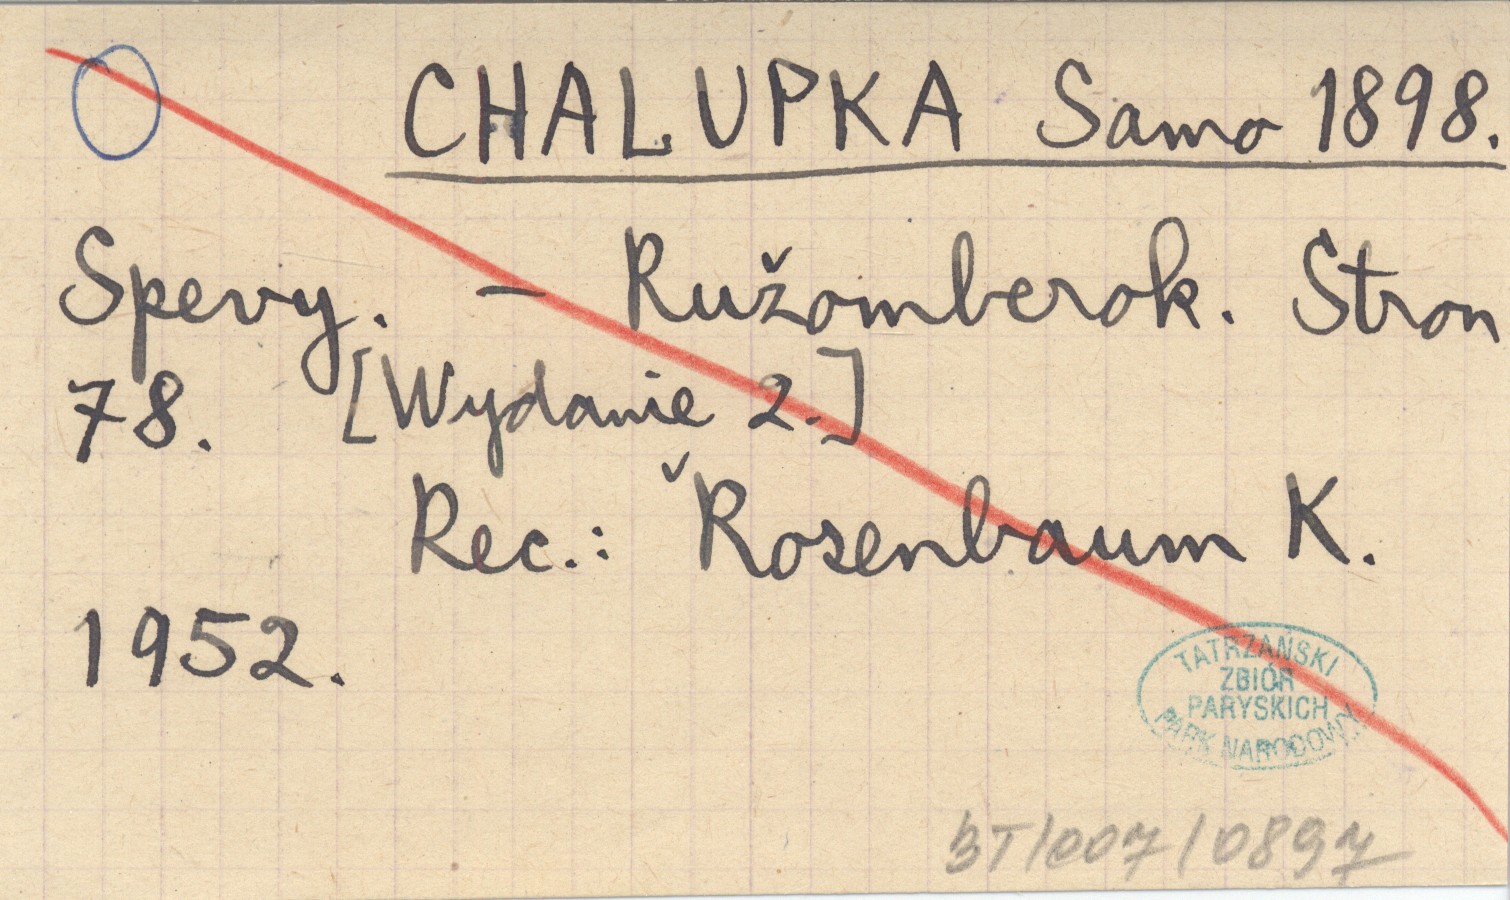 CHALUPKA Samo 1898.
Spevy. - Ružomberok. Stron
78. [Wydanie 2.]
Rec.: Rosenbaum K.
1952.
TATRZAŃSKI
ZBIÓR
PARYSKICH
PARK NARODOWY
BT/007/0897